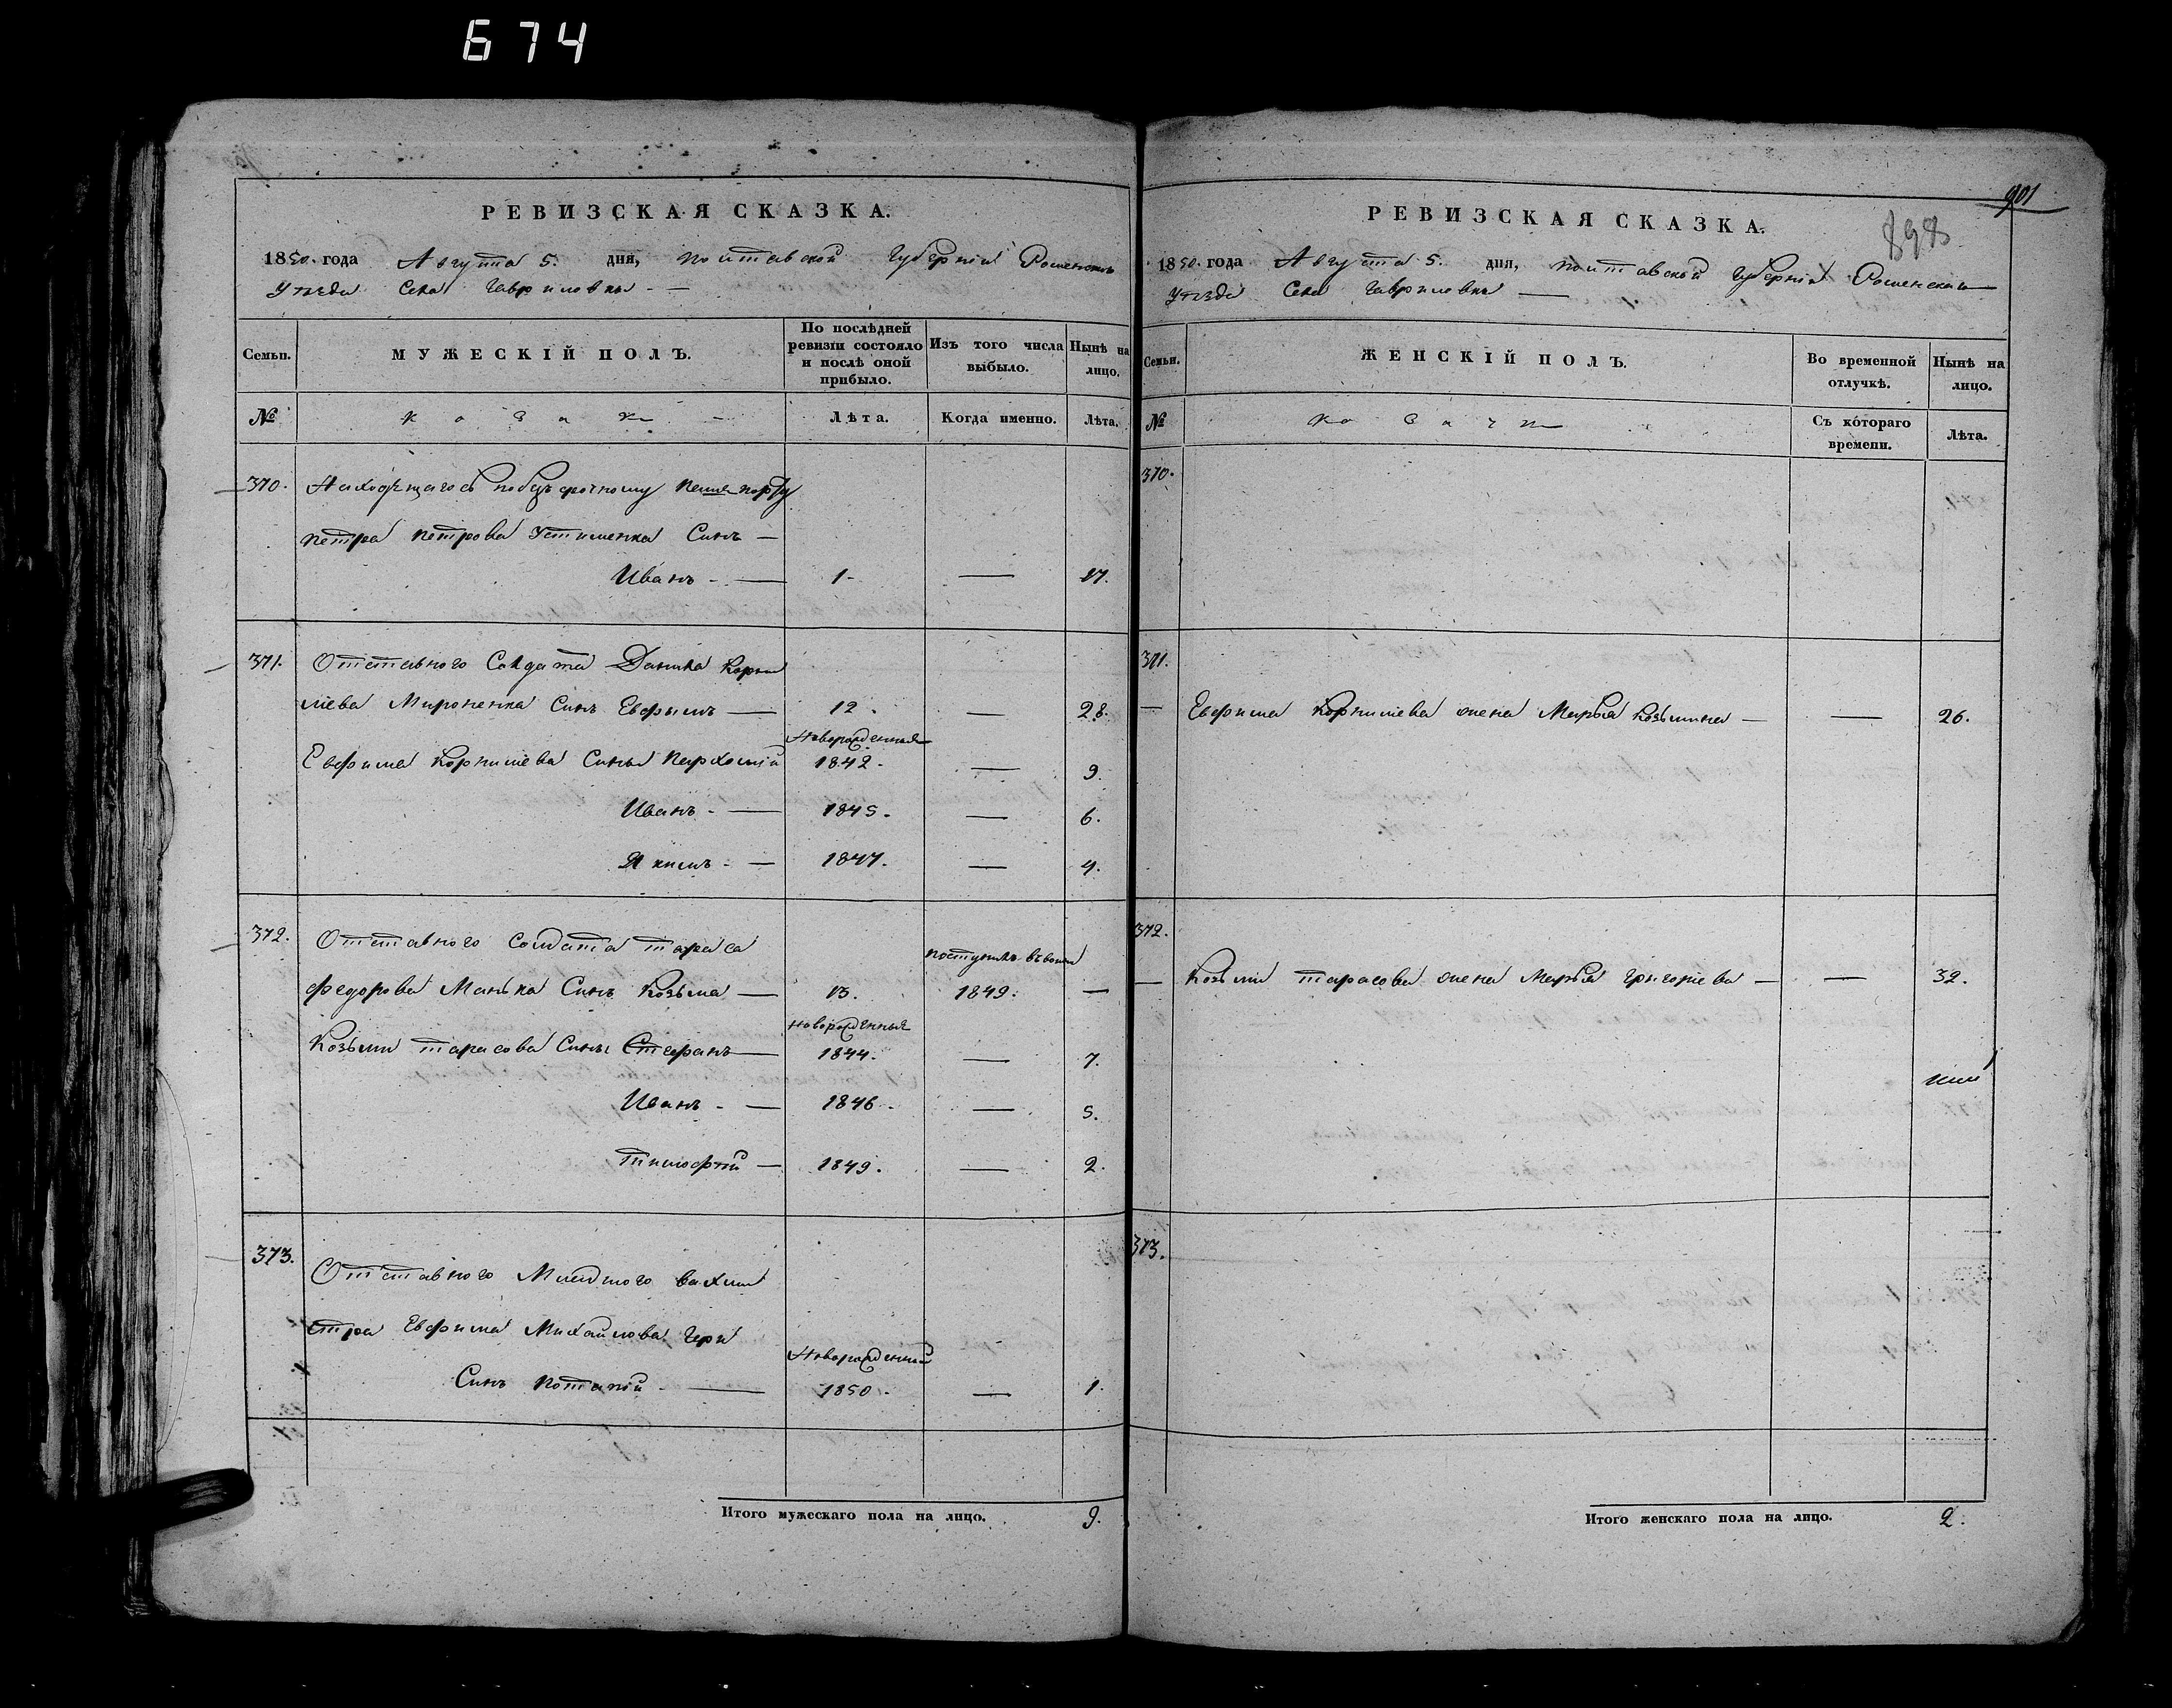 674
РЕВИЗСКАЯ СКАЗКА.
1850. года Августа 5. дня, Полтавской Губерніи Роменского
Уѣзда Села Гавриловки
Семьи.
МУЖЕСКІЙ ПОЛЪ.
По послѣдней ревизіи состояло и послѣ оной прибыло.
Изъ того числа выбыло.
Нынѣ на лицо.
№
козаки
Лѣта.
Когда именно.
Лѣта.
370. Находящагося по безсрочному
Петра Петрова Устименка Синъ
Иванъ 1. — 17.
371. Отставного Солдата Данила Корни
лієва Мироненка Синъ Евфимъ — 12. — 28.
Новорожденныя
Евфима Корнилієва Сины Пархомій 1842. — 9.
Иванъ 1845. — 6.
Якимъ 1847. — 4.
372. Отставного Солдата Тараса
поступилъ въ
Федорова Манька Синъ Козьма — 13. 1849. —
новорожденныя
Козьми Тарасова Сины Стефанъ — 1844. — 7.
Иванъ 1846. — 5.
Тимофій 1849. — 2.
373.
Отставного Младшого вахми
стра Евфима Михайлова
Новорожденный
Синъ Потапій 1850. — 1.
Итого мужескаго пола на лицо. 9.
901
898
РЕВИЗСКАЯ СКАЗКА.
1850. года Августа 5. дня, Полтавской Губерніи Роменского
Уѣзда Села Гавриловки
Семьи.
ЖЕНСКІЙ ПОЛЪ.
Во временной отлучкѣ.
Нынѣ на лицо.
№
козачки
Съ котораго времени.
Лѣта.
370.
371.
— Евфима Корнилієва жена Марья Козьмина — — 26.
372.
— Козьми Тарасова жена Марья Григорієва — — 32.
373.
Итого женскаго пола на лицо. 2.